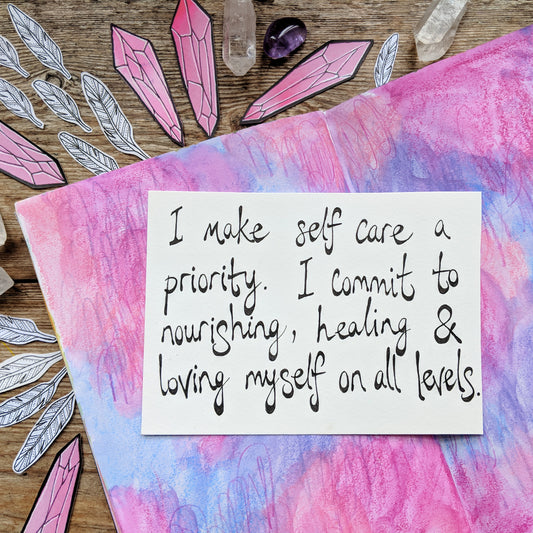 I make self care a
priority. I commit to
nourishing, healing &
loving myself on all levels.